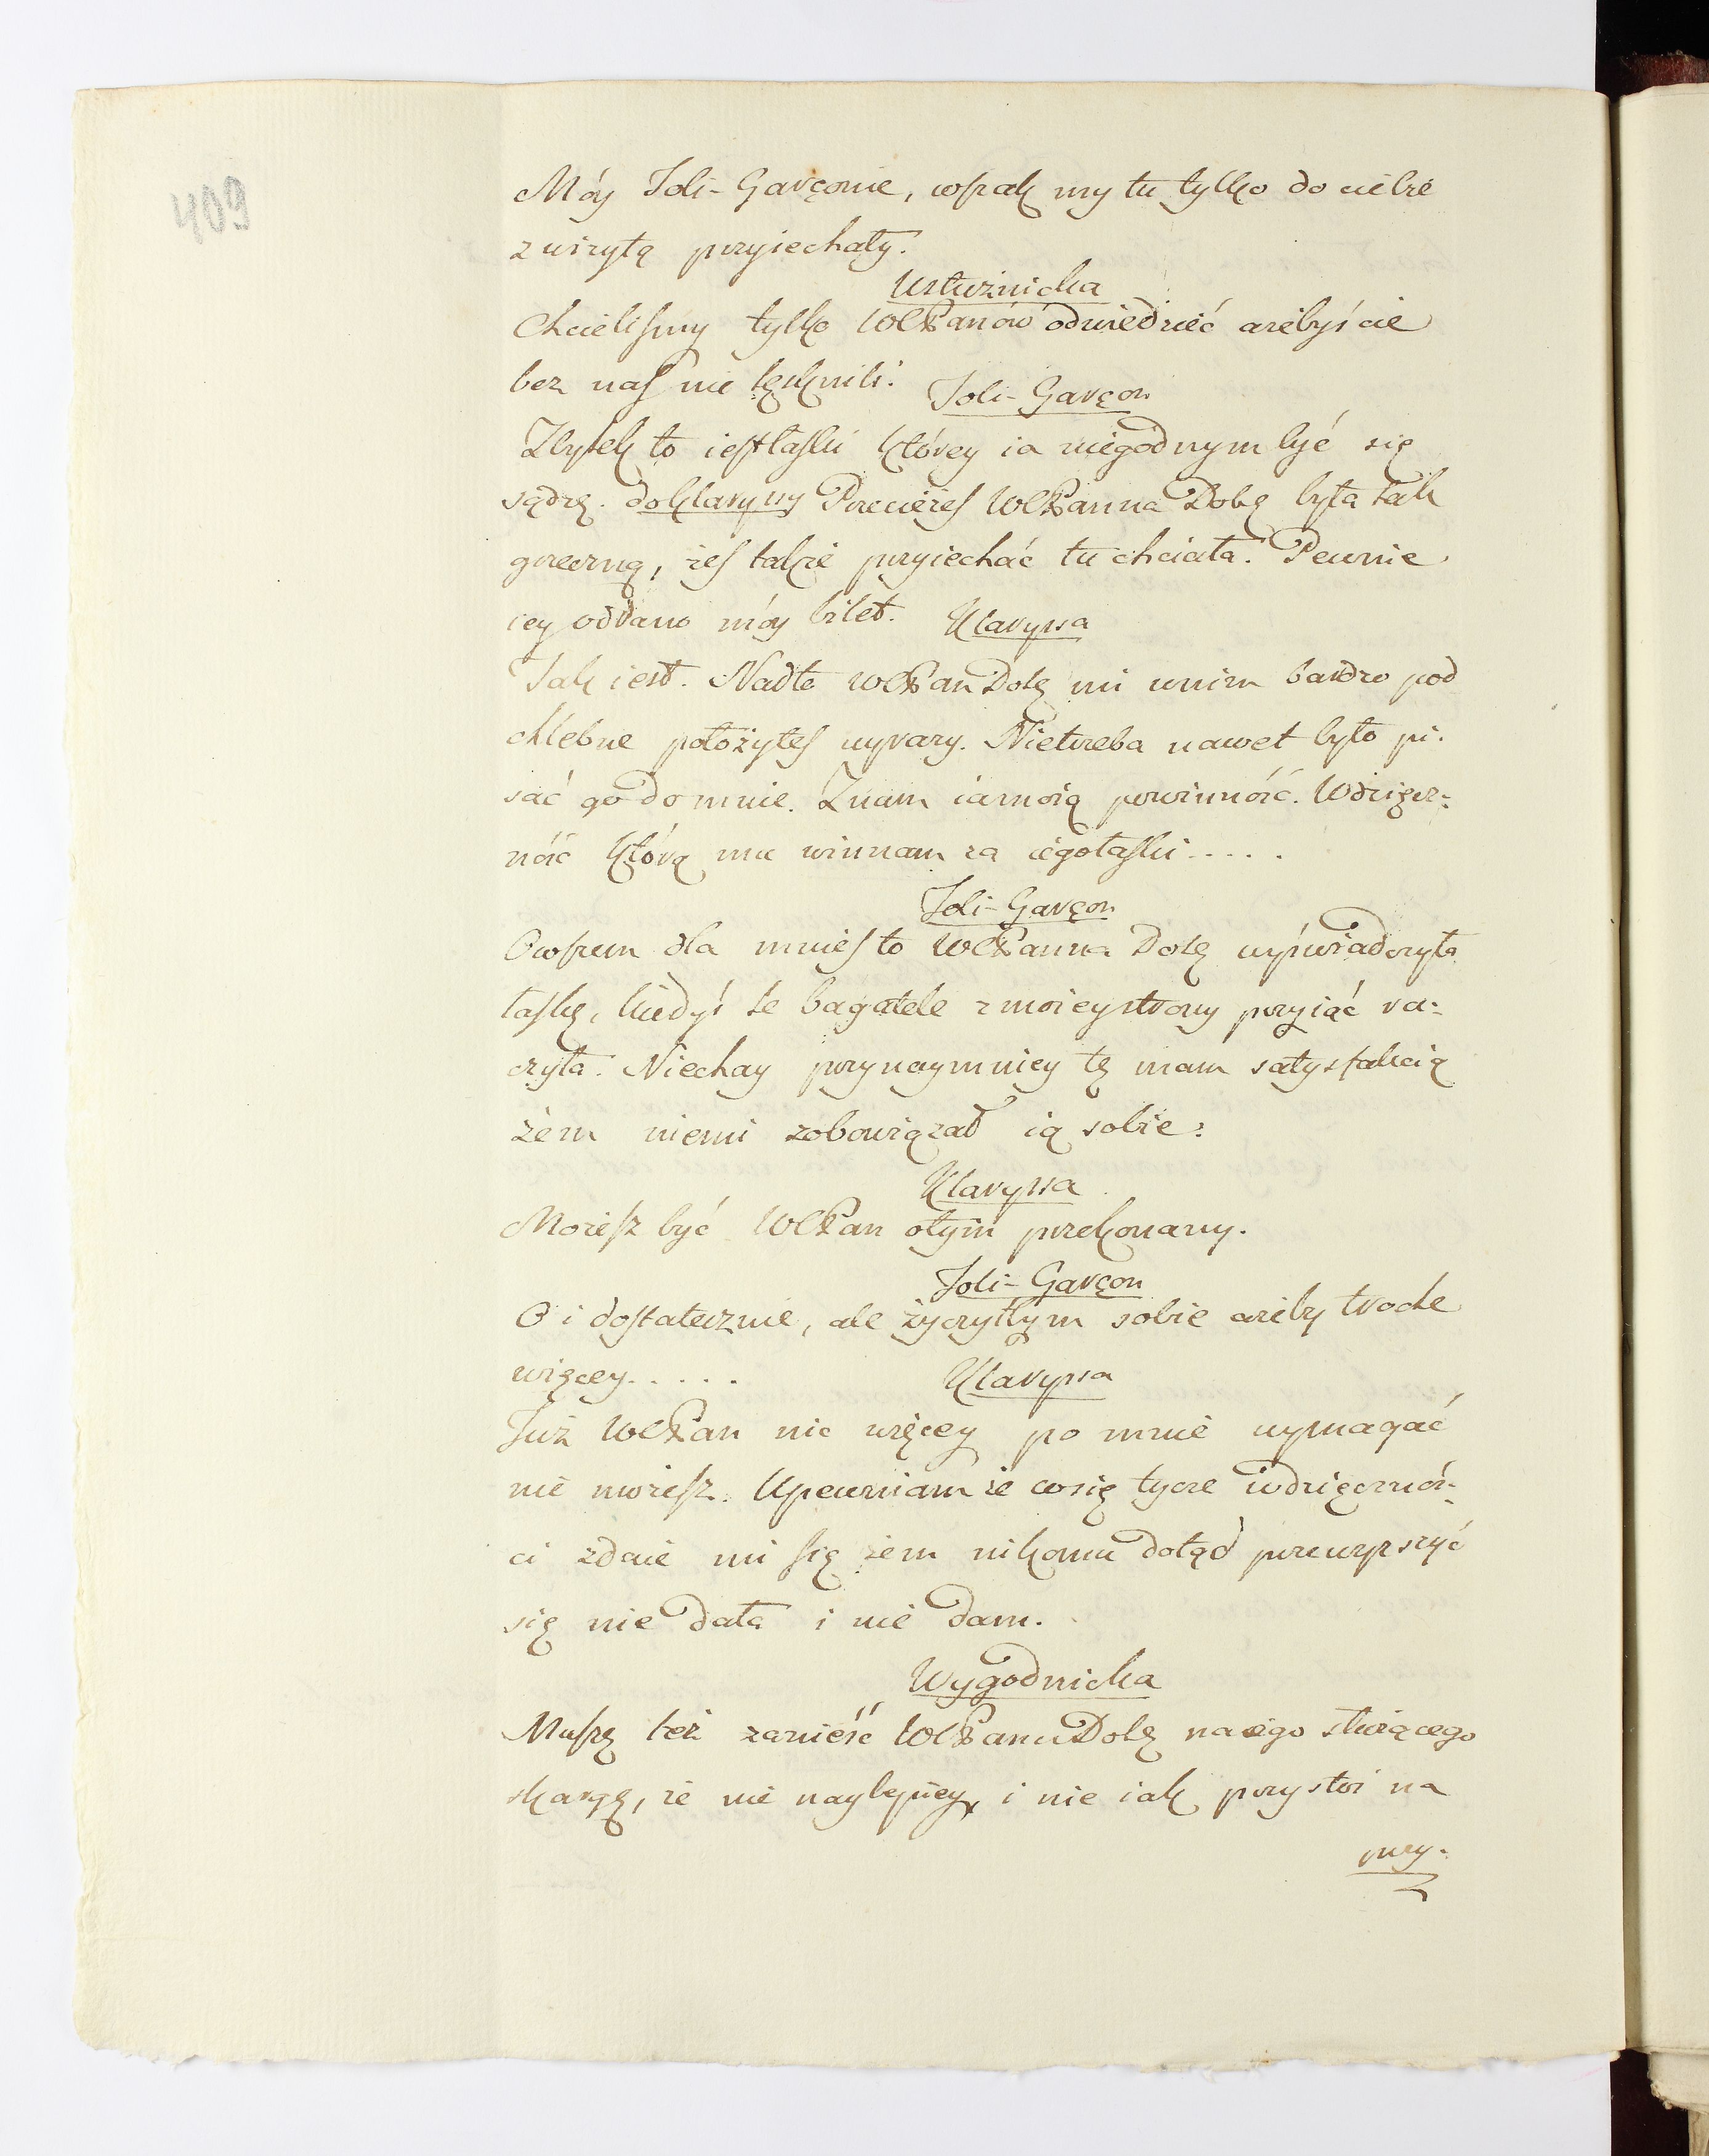 409
Móy Joli-Garçonie, wszak my tu tylko do ciebie
z wizytą przyiechały.
Usłużnicka
Chcieliśmy tylko WMPanów odwiedzieć ażebyście
bez nas nie tęsknili.
Joli-Garçon
Zbytek to iest łaski którey ia niegodnym być się
sądzę. do Klaryssy Przecieżeś WMPanna Dobę była tak
grzeczną, żeś także przyiechać tu chciała. Pewnie
iey oddano móy bilet.
Klaryssa
Tak iest. Nadto WMPan Dobę mi w nim bardzo pod
chlebne położyłeś wyrazy. Nietrzeba nawet było pi-
sać go do mnie. Znam ia moią powinność. Wdzięcz-
ność którą mu winnam za iego łaski.....
Joli-Garçon
Owszem dla mnieś to WMPanna Dobę wyświadczyła
łaskę, kiedyś te bagatele z moiey strony przyiąć ra-
czyła. Niechay przynaymniey tę mam satysfakcią
żem niemi zobowiązał ią sobie.
Klaryssa
Możesz być WMPan o tym przekonany.
Joli-Garçon
O i dostatecznie, ale życzyłbym sobie ażeby troche
więcey.....
Klaryssa
Już WMPan nic więcey po mnie wymagać
nie możesz. Upewniam że co się tycze wdzięcznoś-
ci zdaie mi się żem nikomu dotąd przewyższyć
się nie dała i nie dam.
Wygodnicka
Muszę też zanieść WMPanu Dobę na iego służącego
skargę, że nie naylepiey, i nie iak przystoi na
przy-